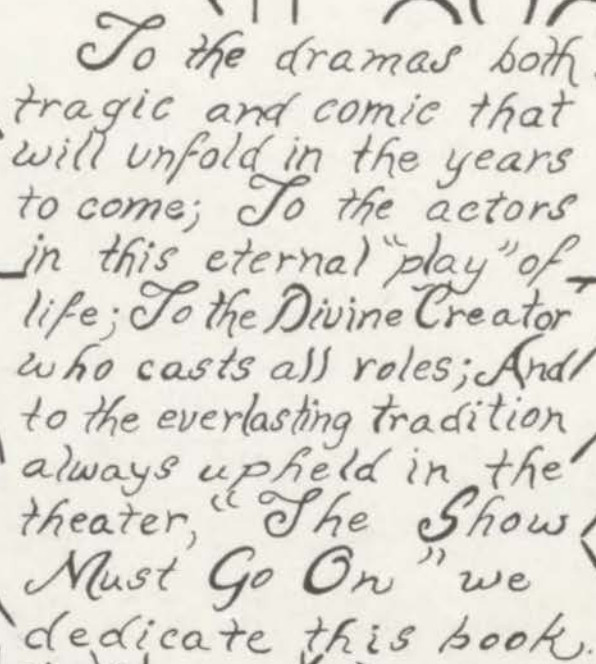 To the dramas both
tragic and comic that
will unfold in the years
to come; To the actors
in this eternal "play" of
life; To the Divine Creator
who casts all roles; And
to the everlasting tradition
always upheld in the
theater, "The Show
Must Go On" we
dedicate this book.